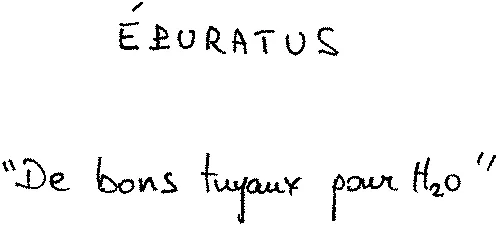 ÉPURATUS
"De bons tuyaux pour H₂O"